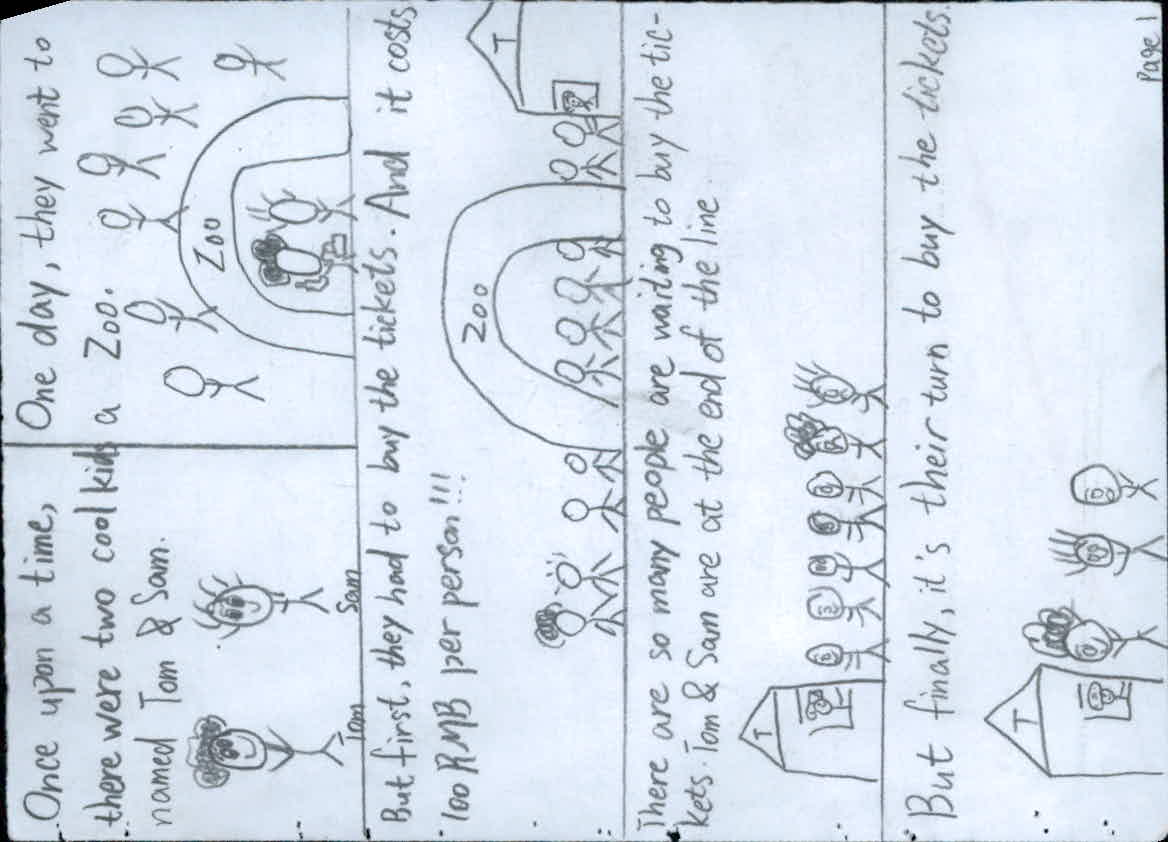 Once upon a time,
there were two cool kids
named Tom & Sam.
Tom
Sam
One day, they went to
a Zoo.
Zoo
But first, they had to buy the tickets. And it costs
100 RMB per person!!!
Zoo
T
There are so many people are waiting to buy the tic-
kets. Tom & Sam are at the end of the line
T
But finally, it's their turn to buy the tickets.
T
Page 1